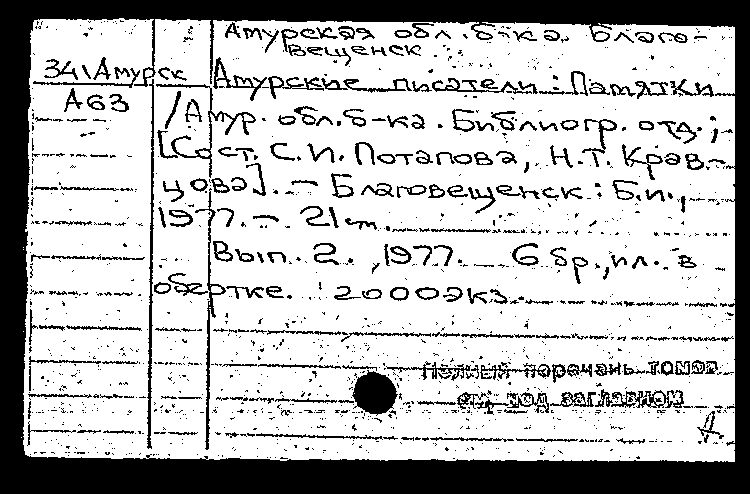 Амурская обл. б-ка. Благо-
вещенск
34\Амурск Амурские писатели: Памятки
А63 /Амур. обл. б-ка. Библиогр. отд.;
[Сост. С. И. Потапова, Н.Т. Крав-
цова]. – Благовещенск: Б.и.,
1977. – 21 см.
Вып. 2., 1977. 6 бр., ил. в
обертке. 2000экз.
Полный перечень томов
см. под заглавием
А